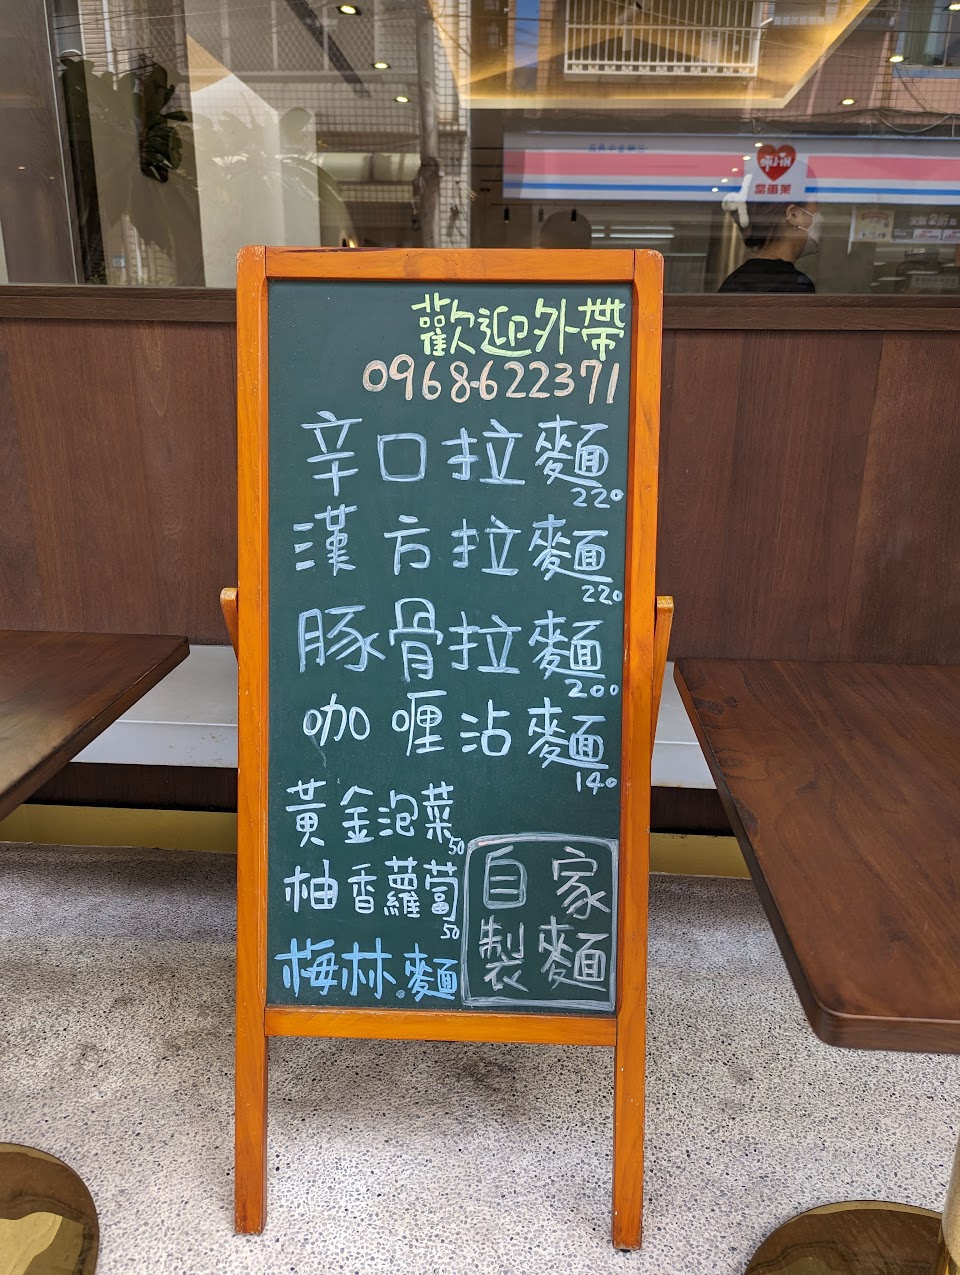 歡迎外帶
0968-622371
辛口拉麵
220
漢方拉麵
220
豚骨拉麵
200
咖喱沾麵
140
黃金泡菜
50
柚香蘿蔔
50
梅林.麵
自家
製麵
Hi-Life
萊爾富